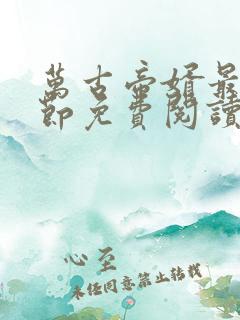 萬古帝婿最
節免費閱讀
心至
未经同意禁止转载